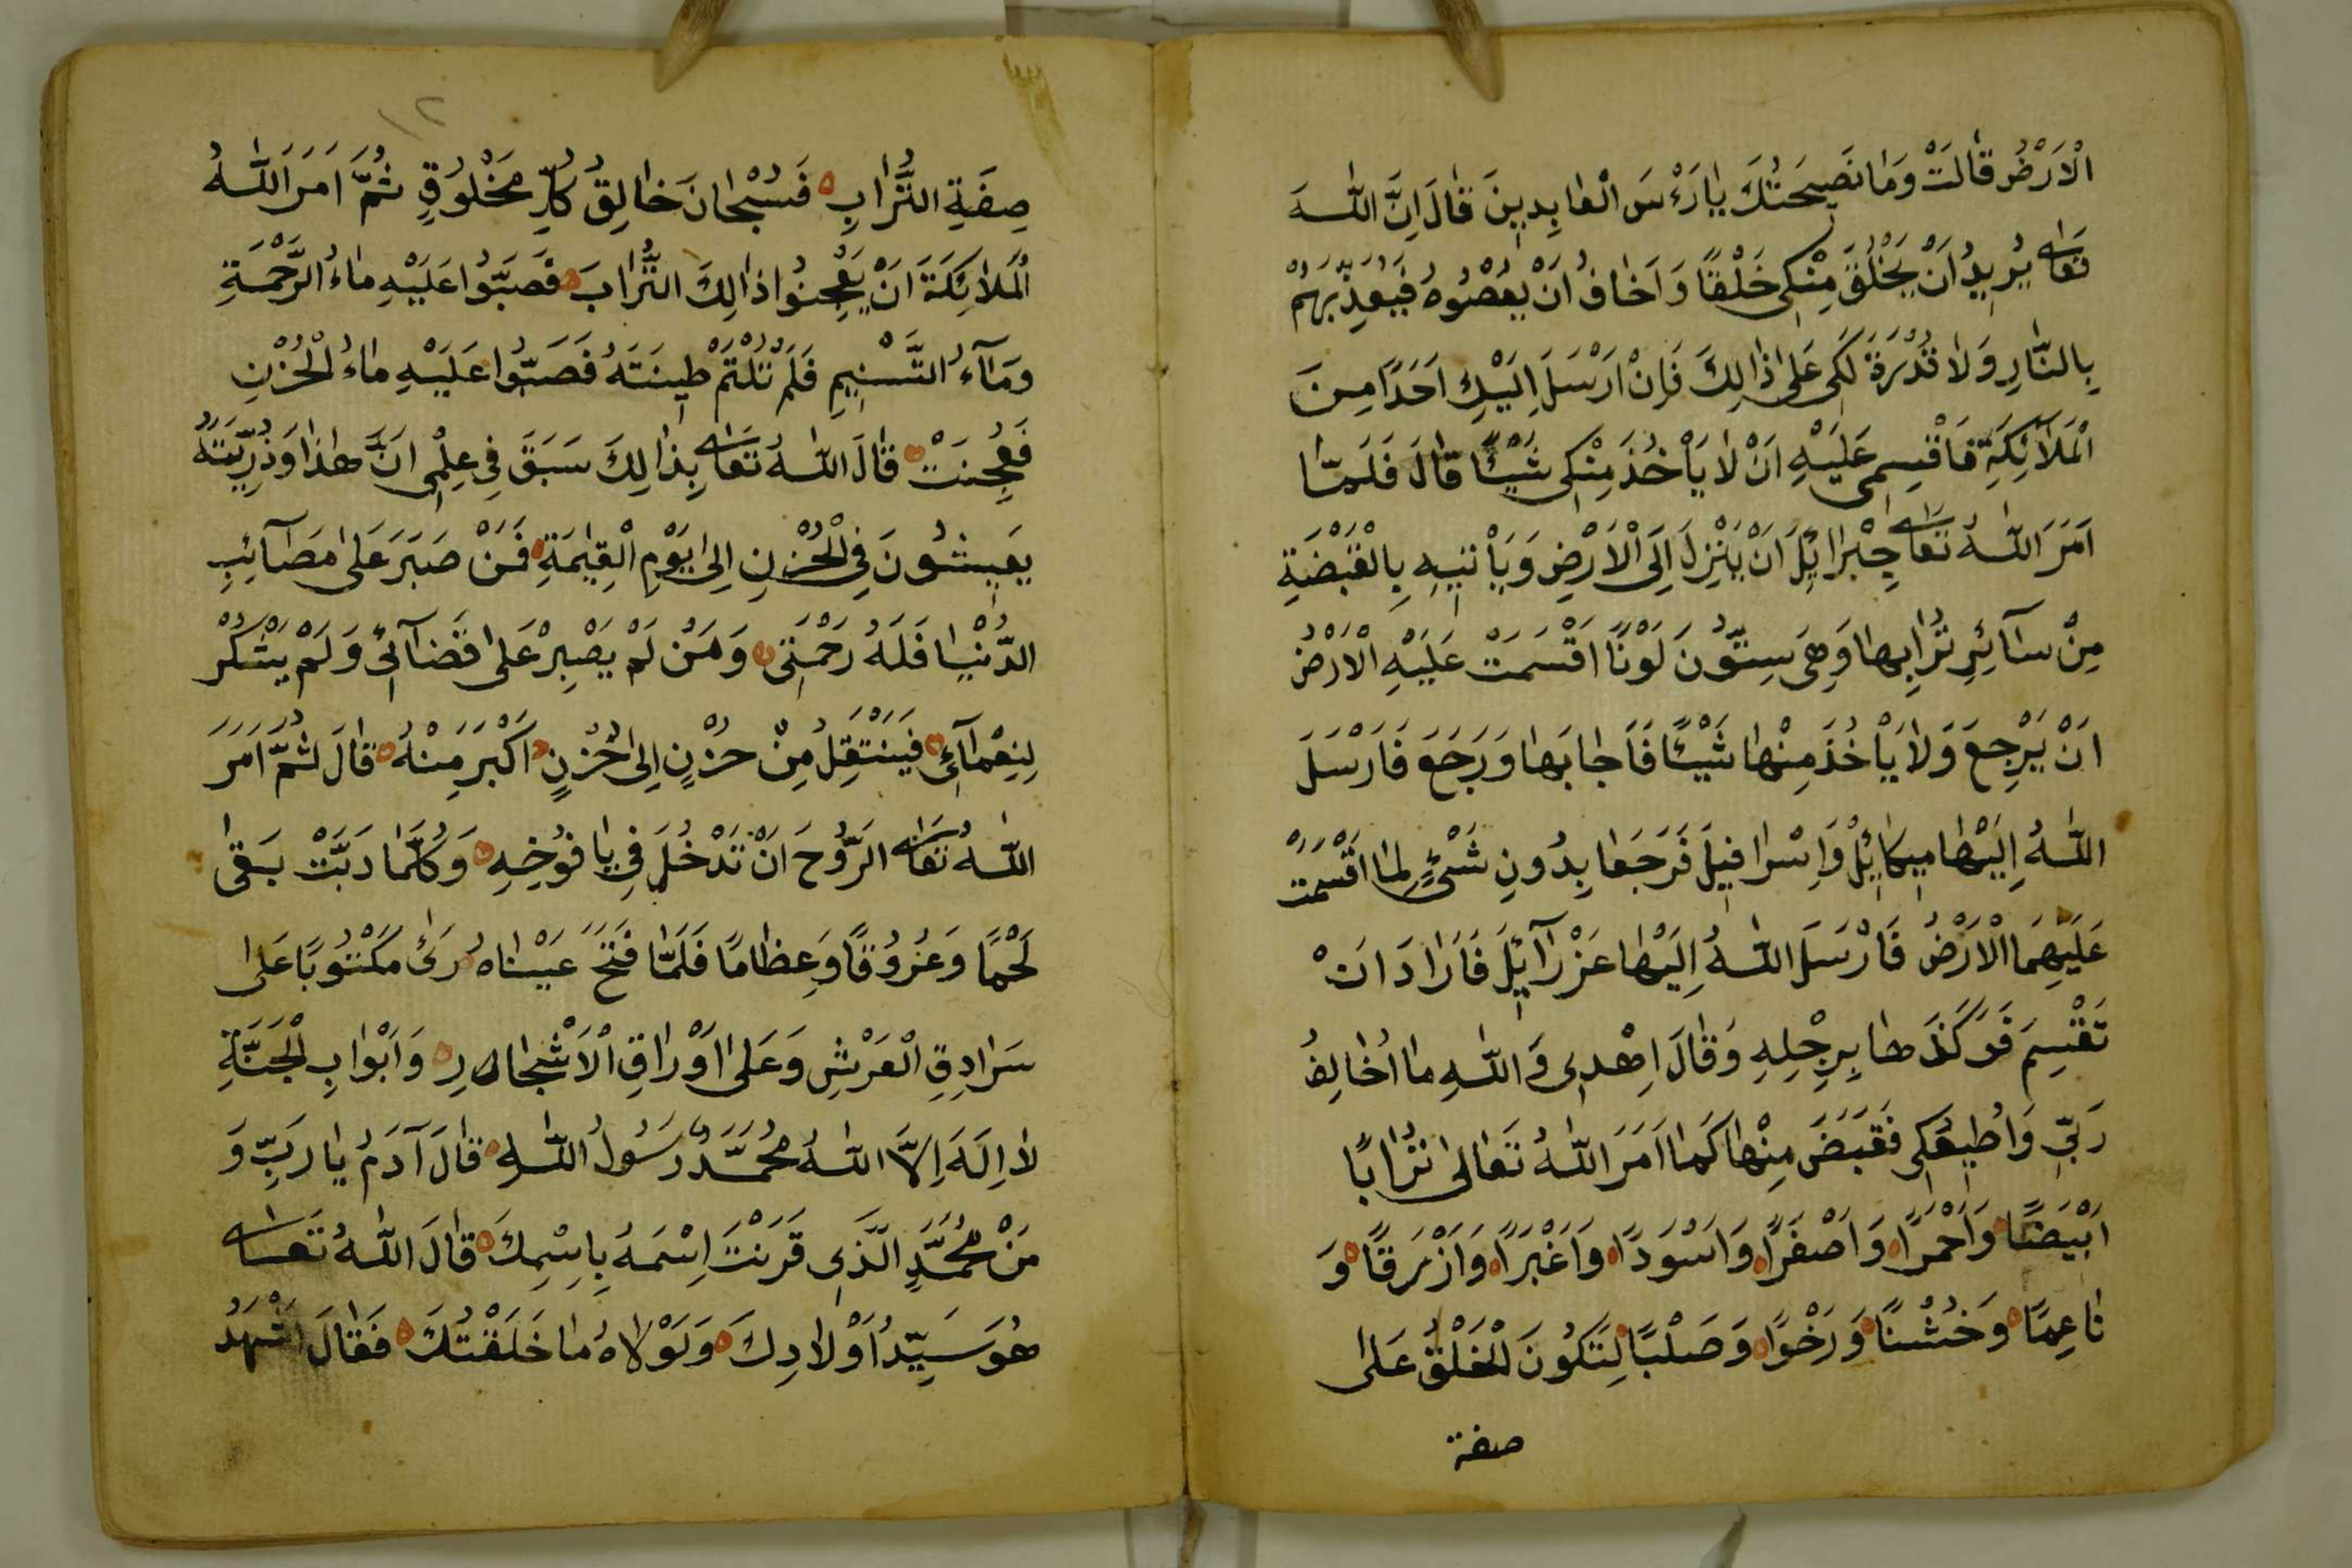 الْاَرْضُ قٰالَتْ وَمٰا نَصِيحَتُكَ يٰا رَءْسَ الْعٰابِدِينَ قٰالَ اِنَّ اللّٰهَ
تَعٰالٰى يُرِيدُ اَنْ يَخْلُقَ مِنْكِى خَلْقًا وَ اَخٰافُ اَنْ يَعْصُوهُ فَيُعَذِّبَهُمْ
بِالنّٰارِ وَلٰا قُدْرَةَ لَكِى عَلٰى ذٰالِكَ فَاِنْ اَرْسَلَ اِلَيْكِ اَحَدًا مِنَ
الْمَلٰآئِكَةِ فَاَقْسِمِى عَلَيْهِ اَنْ لٰا يَأْخُذَ مِنْكِى شَيْئًا قٰالَ فَلَمّٰا
اَمَرَ اللّٰهُ تَعٰالٰى جِبْرٰائِلَ اَنْ يَنْزِلَ اِلَى الْاَرْضِ وَيَأْتِيهِ بِالْقَبْضَةِ
مِنْ سٰآئِرِ تُرٰابِهٰا وَهِىَ سِتُّونَ لَوْنًا اَقْسَمَتْ عَلَيْهِ الْاَرْضُ
اَنْ يَرْجِعَ وَلٰا يَاْخُذَ مِنْهٰا شَيْئًا فَاَجٰابَهٰا وَرَجَعَ فَاَرْسَلَ
اللّٰهُ اِلَيْهٰا مِيكٰائِلْ وَاِسْرٰافِيلَ فَرَجَعٰا بِدُونِ شَىْءٍ لِمٰا اَقْسَمَتْ
عَلَيْهِمَا الْاَرْضُ فَاَرْسَلَ اللّٰهُ اِلَيْهٰا عَزْرٰآئِلَ فَاَرٰادَ اَنْ
تَقْسِمَ فَوَكَذَهٰا بِرِجْلِهِ وَقٰالَ اِهْدِى وَاللّٰهِ مٰا اُخٰالِفُ
رَبِّى وَاُطِيعُكِى فَقَبَضَ مِنْهٰا كَمٰا اَمَرَ اللّٰهُ تَعٰالٰى تُرٰابًا
اَبْيَضًا وَاَحْمَرًا وَاَصْفَرًا وَاَسْوَدًا وَاَغْبَرًا وَاَزْرَقًا وَ
نٰاعِمًا وَخُشْنًا وَرَخْوًا وَصَلْبًا لِتَكُونَ الْخَلْقُ عَلٰى
صفة
١٢
صِفَةِ التُّرٰابِ فَسُبْحٰانَ خٰالِقُ كُلِّ مَخْلُوقٍ ثُمَّ اَمَرَ اللّٰهُ
الْمَلٰائِكَةَ اَنْ يَعْجِنُوا ذٰالِكَ التُّرٰابَ فَصَبُّوا عَلَيْهِ مٰاءُ الرَّحْمَةِ
وَمٰآءُ التَّسْنِيمِ فَلَمْ تَلْتَمْ طِينَتَهُ فَصَبُّوا عَلَيْهِ مٰاءُ الْحُزْنِ
فَعُجِنَتْ قٰالَ اللّٰهُ تَعٰالٰى بِذٰالِكَ سَبَقَ فِى عِلْمِى اَنَّ هٰذٰا وَذُرِّيَّتَهُ
يَعِيشُونَ فِى الْحُزْنِ اِلٰى يَوْمِ الْقِيٰمَةِ فَمَنْ صَبَرَ عَلٰى مَصٰآئِبِ
الدُّنْيٰا فَلَهُ رَحْمَتِى وَمَنْ لَمْ يَصْبِرْ عَلٰى قَضٰآئِى وَلَمْ يَشْكُرْ
لِنِعْمٰآئِى فَيَنْتَقِلُ مِنْ حُزْنٍ اِلٰى حُزْنٍ اَكْبَرَ مِنْهُ قٰالَ ثُمَّ اَمَرَ
اللّٰهُ تَعٰالٰى الرُّوحَ اَنْ تَدْخُلَ فِى يٰافُوخِهِ وَكُلَّمٰا دَبَّتْ بَقٰى
لَحْمًا وَعُرُوقًا وَعِظٰامًا فَلَمّٰا فَتَحَ عَيْنٰاهُ رَئٰ مَكْتُوبًا عَلٰى
سَرٰادِقِ الْعَرْشِ وَعَلٰى اَوْرٰاقِ الْاَشْجٰارِ وَاَبْوٰابِ الْجَنَّةِ
لٰا اِلَهَ اِلَّا اللّٰهُ مُحَمَّدٌ رَسُولُ اللّٰهِ قٰالَ آدَمُ يٰا رَبِّ وَ
مَنْ مُحَمَّدٍ الَّذِى قَرَنْتَ اِسْمَهُ بِاِسْمِكَ قٰالَ اللّٰهُ تَعٰالٰى
هُوَ سَيِّدُ اَوْلٰادِكَ وَلَوْلٰاهُ مٰا خَلَقْتُكَ فَقٰالَ اَشْهَدُ